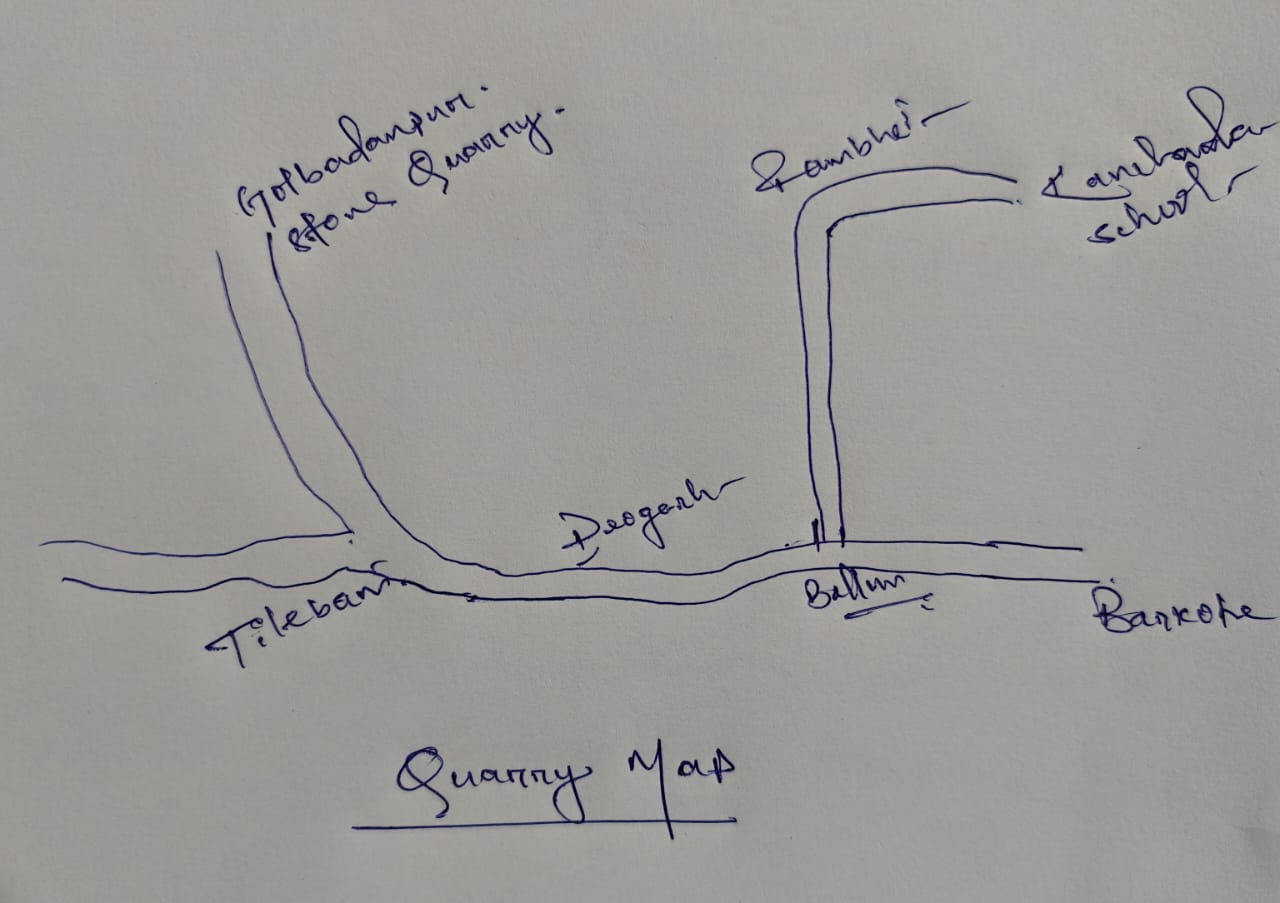 Golbadanpur.
stone Quarry.
Rambhei
Kanchada
school
Deogarh
Tilebani
Ballam
Barkote
Quarry Map